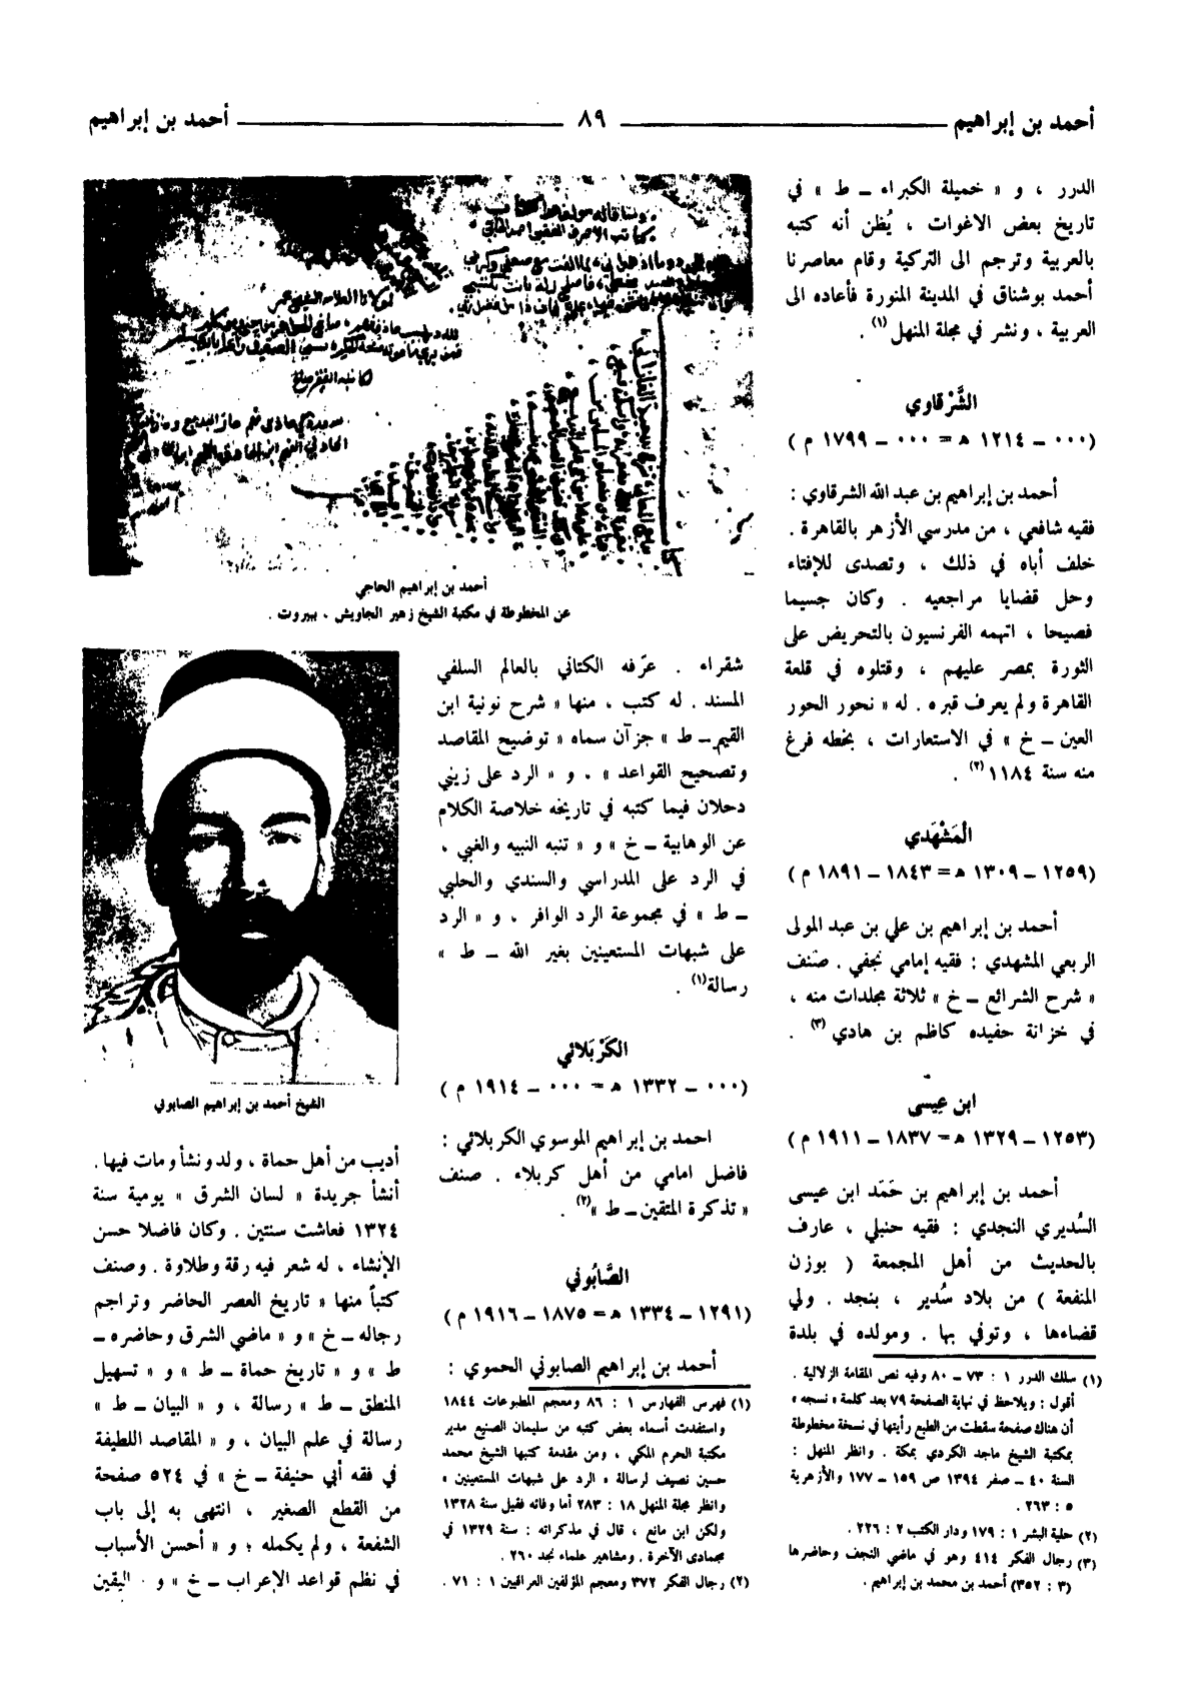 أحمد بن إبراهيم
٨٩
أحمد بن إبراهيم
الدرر ، و « خميلة الكبراء ــ ط » في
تاريخ بعض الاغوات ، يُظن أنه كتبه
بالعربية وترجم الى التركية وقام معاصرنا
أحمد بوشناق في المدينة المنورة فأعاده الى
العربية ، ونشر في مجلة المنهل (١) .
الشَّرْقاوي
(٠٠٠ ــ ١٢١٤ هـ = ٠٠٠ ــ ١٧٩٩ م )
أحمد بن إبراهيم بن عبد الله الشرقاوي :
فقيه شافعي ، من مدرسي الأزهر بالقاهرة .
خلف أباه في ذلك ، وتصدى للإفتاء
وحل قضايا مراجعيه . وكان جسيما
فصيحا ، اتهمه الفرنسيون بالتحريض على
الثورة بمصر عليهم ، وقتلوه في قلعة
القاهرة ولم يعرف قبره . له « نحور الحور
العين ــ خ » في الاستعارات ، بخطه فرغ
منه سنة ١١٨٤ (٢) .
الْمَشْهَدي
(١٢٥٩ ــ ١٣٠٩ هـ = ١٨٤٣ ــ ١٨٩١ م )
أحمد بن إبراهيم بن علي بن عبد المولى
الربعي المشهدي : فقيه إمامي نجفي . صنف
« شرح الشرائع ــ خ » ثلاثة مجلدات منه ،
في خزانة حفيده كاظم بن هادي (٣) .
ابن عِيسى
(١٢٥٣ ــ ١٣٢٩ هـ = ١٨٣٧ ــ ١٩١١ م )
أحمد بن إبراهيم بن حَمَد ابن عيسى
السُديري النجدي : فقيه حنبلي ، عارف
بالحديث من أهل المجمعة ( بوزن
المنفعة ) من بلاد سُدير ، بنجد . ولي
قضاءها ، وتوفي بها . ومولده في بلدة
(١) سلك الدرر ١ : ٧٣ ــ ٨٠ وفيه نص المقامة الزلالية .
أقول : ويلاحظ في نهاية الصفحة ٧٩ بعد كلمة « نسجه »
أن هناك صفحة سقطت من الطبع رأيتها في نسخة مخطوطة
بمكتبة الشيخ ماجد الكردي بمكة . وانظر المنهل :
السنة ٤٠ ــ صفر ١٣٩٤ ص ١٥٩ ــ ١٧٧ والأزهرية
٥ : ٢٦٣ .
(٢) حلية البشر ١ : ١٧٩ ودار الكتب ٢ : ٢٢٦ .
(٣) رجال الفكر ٤١٤ وهو في ماضي النجف وحاضرها
(٣ : ٣٥٢) أحمد بن محمد بن إبراهيم .
أحمد بن إبراهيم الحاجي
عن المخطوطة في مكتبة الشيخ زهير الجاويش ، ببيروت .
شقراء . عرّفه الكتاني بالعالم السلفي
المسند . له كتب ، منها « شرح نونية ابن
القيم ــ ط » جزآن سماه « توضيح المقاصد
وتصحيح القواعد » ، و « الرد على زيني
دحلان فيما كتبه في تاريخه خلاصة الكلام
عن الوهابية ــ خ » و « تنبه النبيه والغبي ،
في الرد على المدراسي والسندي والحلبي
ــ ط » في مجموعة الرد الوافر ، و « الرد
على شبهات المستعينين بغير الله ــ ط »
رسالة (١) .
الكَرْبَلائي
(٠٠٠ ــ ١٣٣٢ هـ = ٠٠٠ ــ ١٩١٤ م )
احمد بن إبراهيم الموسوي الكربلائي :
فاضل امامي من أهل كربلاء . صنف
« تذكرة المتقين ــ ط » (٢) .
الصَّابُوني
(١٢٩١ ــ ١٣٣٤ هـ = ١٨٧٥ ــ ١٩١٦ م )
أحمد بن إبراهيم الصابوني الحموي :
(١) فهرس الفهارس ١ : ٨٦ ومعجم المطبوعات ١٨٤٤
واستفدت أسماء بعض كتبه من سليمان الصنيع مدير
مكتبة الحرم المكي ، ومن مقدمة كتبها الشيخ محمد
حسين نصيف لرسالة « الرد على شبهات المستعينين »
وانظر مجلة المنهل ١٨ : ٢٨٣ أما وفاته فقيل سنة ١٣٢٨
ولكن ابن مانع ، قال في مذكراته : سنة ١٣٢٩ في
جمادى الآخرة . ومشاهير علماء نجد ٢٦٠ .
(٢) رجال الفكر ٣٧٢ ومعجم المؤلفين العراقيين ١ : ٧١ .
الشيخ أحمد بن إبراهيم الصابوني
أديب من أهل حماة ، ولد ونشأ ومات فيها .
أنشأ جريدة « لسان الشرق » يومية سنة
١٣٢٤ فعاشت سنتين . وكان فاضلا حسن
الإنشاء ، له شعر فيه رقة وطلاوة . وصنف
كتباً منها « تاريخ العصر الحاضر وتراجم
رجاله ــ خ » و « ماضي الشرق وحاضره ــ
ط » و « تاريخ حماة ــ ط » و « تسهيل
المنطق ــ ط » رسالة ، و « البيان ــ ط »
رسالة في علم البيان ، و « المقاصد اللطيفة
في فقه أبي حنيفة ــ خ » في ٥٢٤ صفحة
من القطع الصغير ، انتهى به إلى باب
الشفعة ، ولم يكمله ؛ و « أحسن الأسباب
في نظم قواعد الإعراب ــ خ » و « اليقين